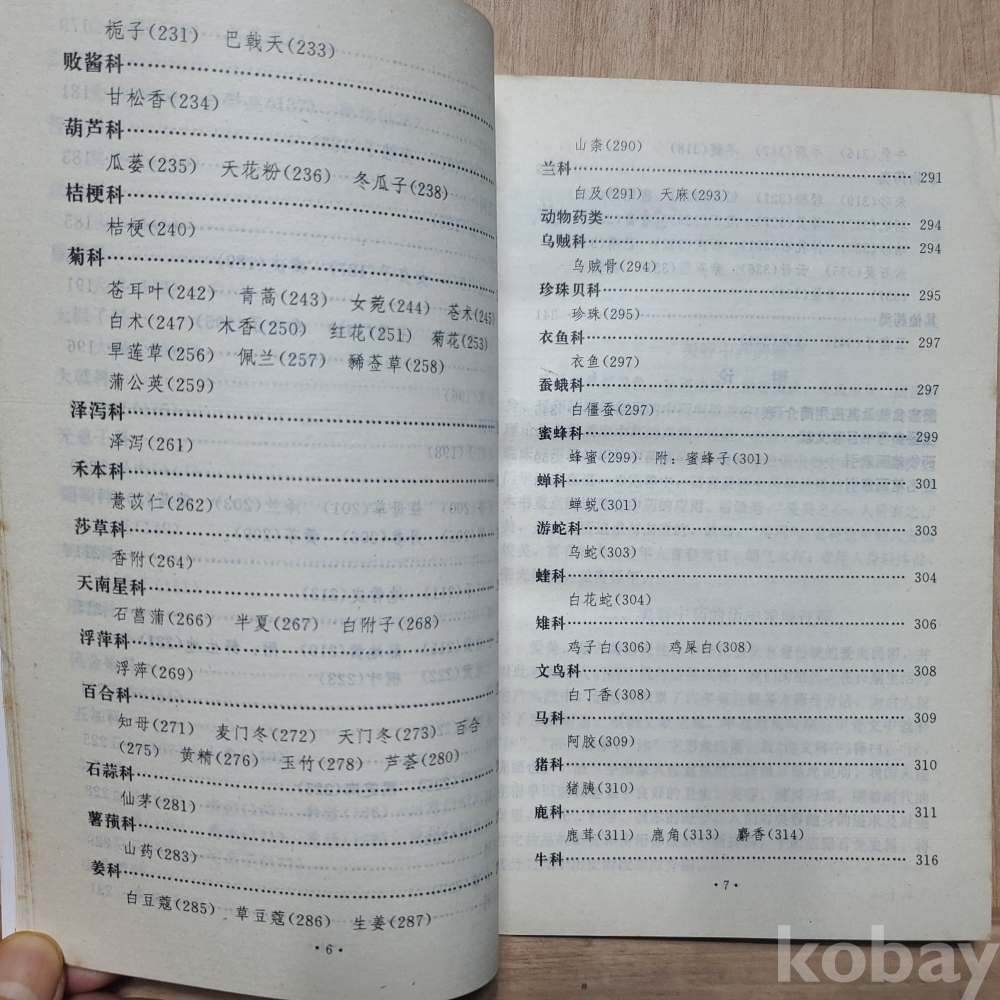 栀子(231) 巴戟天(233)
败酱科
甘松香(234)
葫芦科
瓜蒌(235) 天花粉(236) 冬瓜子(238)
桔梗科
桔梗(240)
菊科
苍耳叶(242) 青蒿(243) 女菀(244) 苍术(245)
白术(247) 木香(250) 红花(251) 菊花(253)
旱莲草(256) 佩兰(257) 豨莶草(258)
蒲公英(259)
泽泻科
泽泻(261)
禾本科
薏苡仁(262)
莎草科
香附(264)
天南星科
石菖蒲(266) 半夏(267) 白附子(268)
浮萍科
浮萍(269)
百合科
知母(271) 麦门冬(272) 天门冬(273) 百合
(275) 黄精(276) 玉竹(278) 芦荟(280)
石蒜科
仙茅(281)
薯蓣科
山药(283)
姜科
白豆蔻(285) 草豆蔻(286) 生姜(287)
·6·
山柰(290)
兰科 291
白及(291) 天麻(293)
动物药类 294
乌贼科 294
乌贼骨(294)
珍珠贝科 295
珍珠(295)
衣鱼科 297
衣鱼(297)
蚕蛾科 297
白僵蚕(297)
蜜蜂科 299
蜂蜜(299) 附：蜜蜂子(301)
蝉科 301
蝉蜕(301)
游蛇科 303
乌蛇(303)
蝰科 304
白花蛇(304)
雉科 306
鸡子白(306) 鸡屎白(308)
文鸟科 308
白丁香(308)
马科 309
阿胶(309)
猪科 310
猪胰(310)
鹿科 311
鹿茸(311) 鹿角(313) 麝香(314)
牛科 316
·7·
kobay